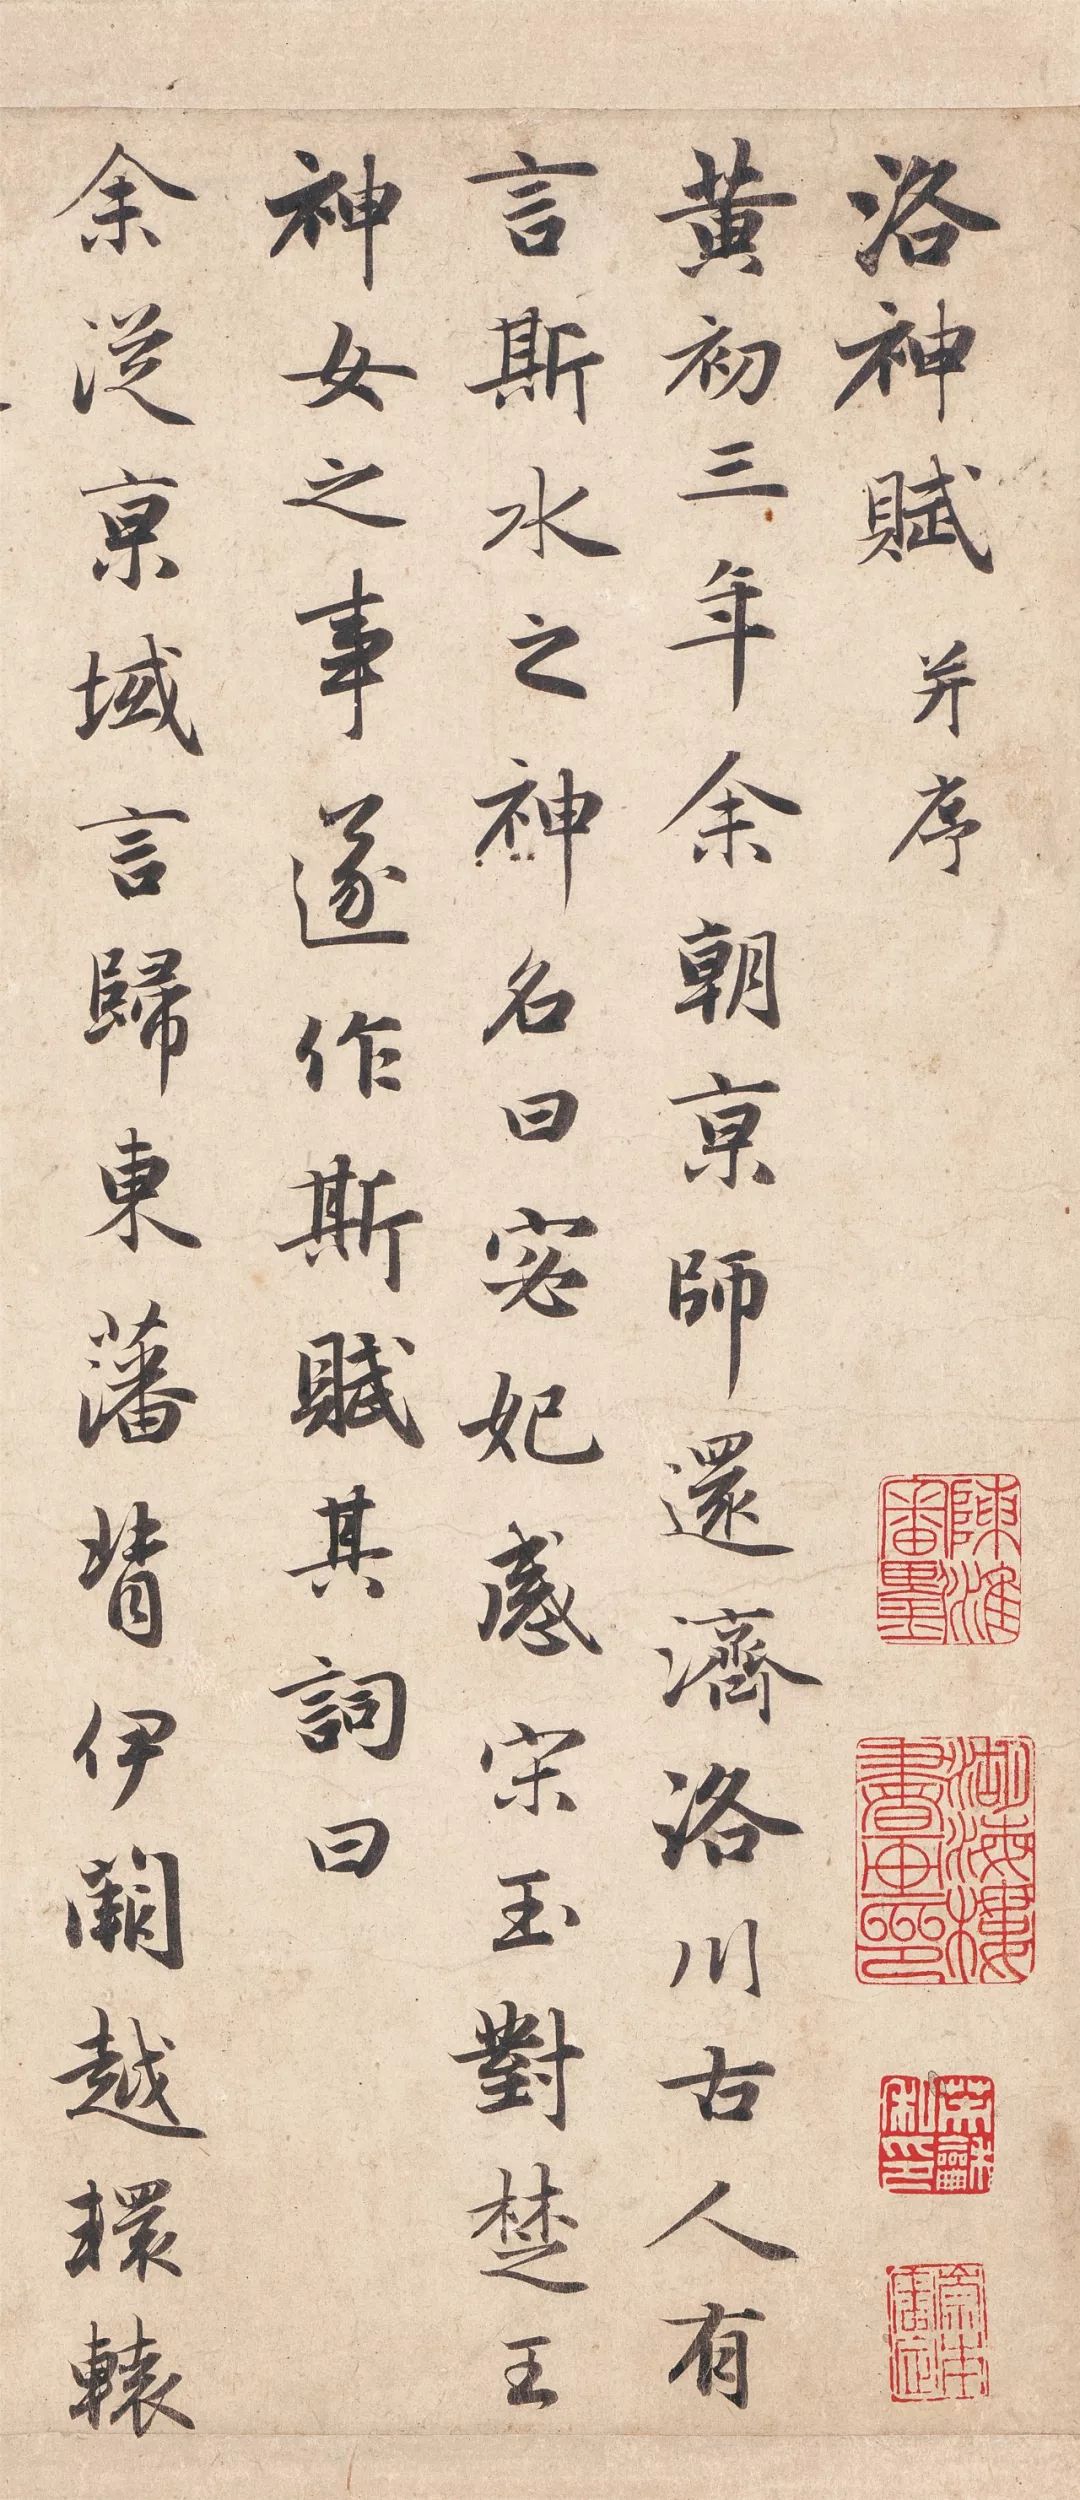 洛神賦 并序
黄初三年余朝京師還濟洛川古人有
言斯水之神名曰宓妃感宋玉對楚王
神女之事遂作斯賦其詞曰
余從京域言歸東藩背伊闕越轘轅